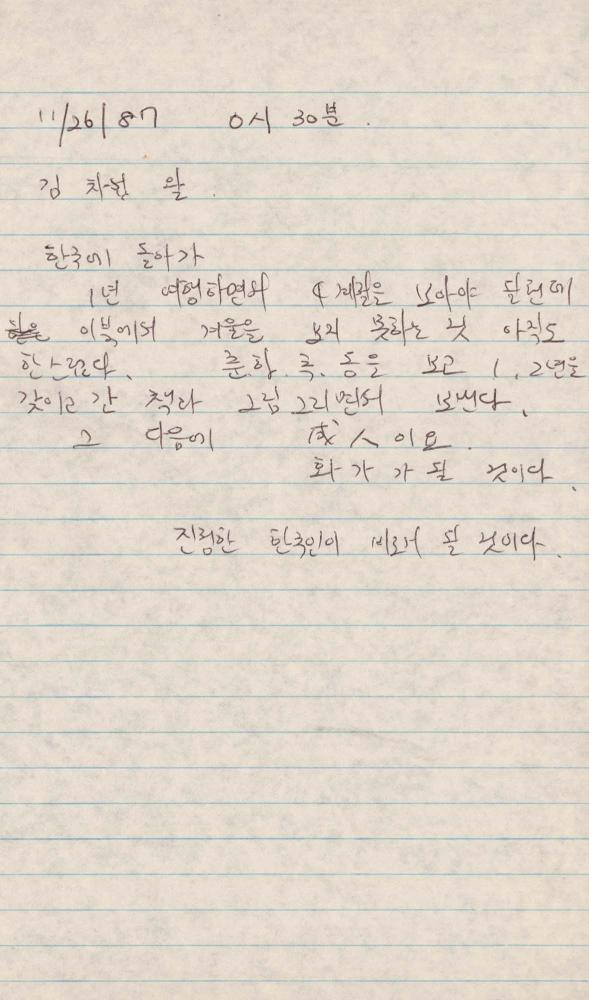 11/26/87 0시 30분.
김 차원 왈.
한국에 돌아가
1년 여행하면서 4계절을 보아야 할텐데
이북에서 겨울을 보지 못하는 것 아직도
한스럽다. 춘.하.추.동을 보고 1, 2년을
갖이고 간 책과 그림 그리면서 보낸다.
그 다음에 成人이요.
화가가 될 것이다.
진정한 한국인이 비로서 될 것이다.